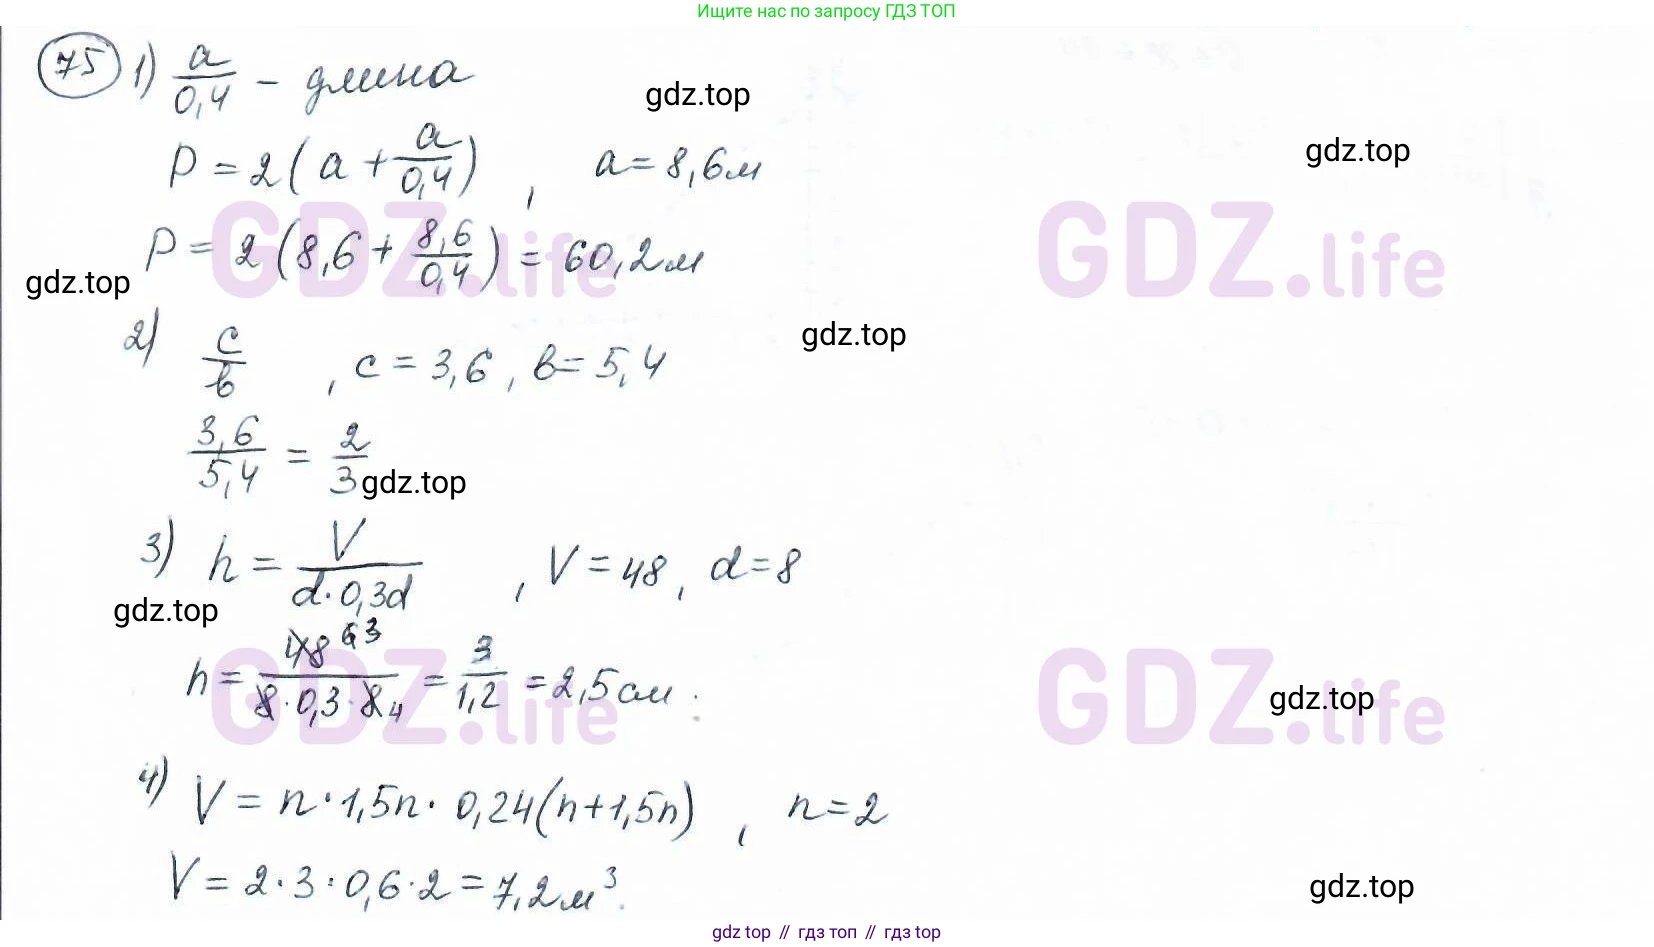 Ищите нас по запросу ГДЗ ТОП
75 1) a/0,4 - длина
gdz.top
gdz.top
P = 2(a + a/0,4), a = 8,6 м
GDZ.life GDZ.life
P = 2(8,6 + 8,6/0,4) = 60,2 м
gdz.top
gdz.top
2) c/b, c = 3,6, b = 5,4
3,6/5,4 = 2/3
gdz.top
3) h = V/(d·0,3d), V = 48, d = 8
gdz.top
h = 48 6 3/(8·0,3·8 4) = 3/1,2 = 2,5 см.
GDZ.life GDZ.life
gdz.top
4) V = n·1,5n·0,24(n+1,5n), n = 2
V = 2·3·0,6·2 = 7,2 м³.
gdz.top
gdz top // гдз топ // gdz top